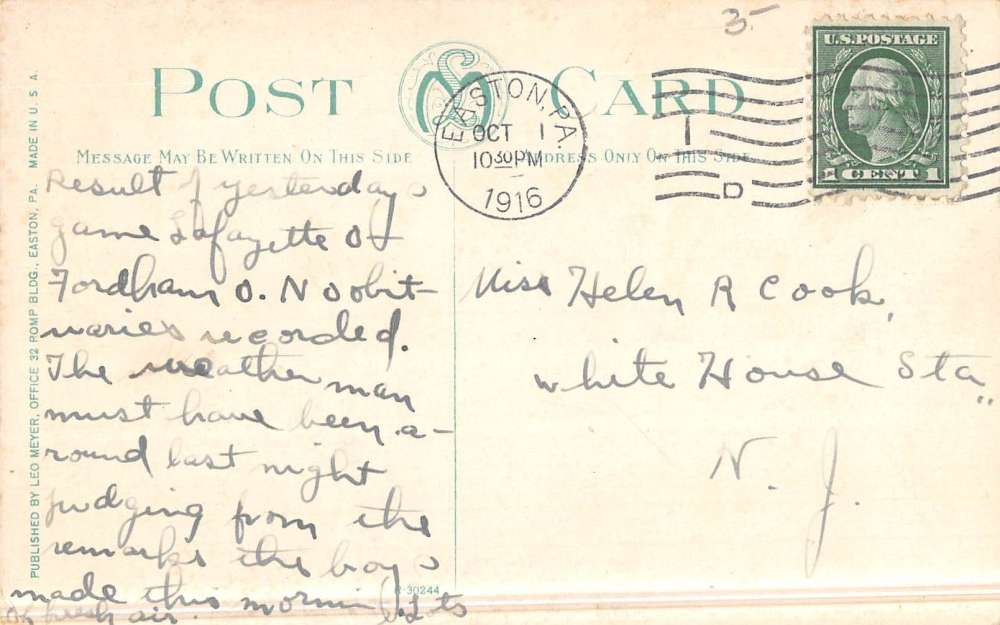 3-
POST CARD
MESSAGE MAY BE WRITTEN ON THIS SIDE
ADDRESS ONLY ON THIS SIDE
EASTON, PA.
OCT 1
10 30 PM
1916
D
U.S. POSTAGE
1 CENT 1
PUBLISHED BY LEO MEYER, OFFICE 32 POMP BLDG., EASTON, PA. MADE IN U. S. A.
Result of yesterdays
game Lafayette 0 -
Fordham 0. No obit-
uaries recorded.
The weather man
must have been a-
round last night
judging from the
remarks the boys
made this mornin Lots
of fresh air.
R-30244
Miss Helen R Cook,
White House Sta.,
N. J.